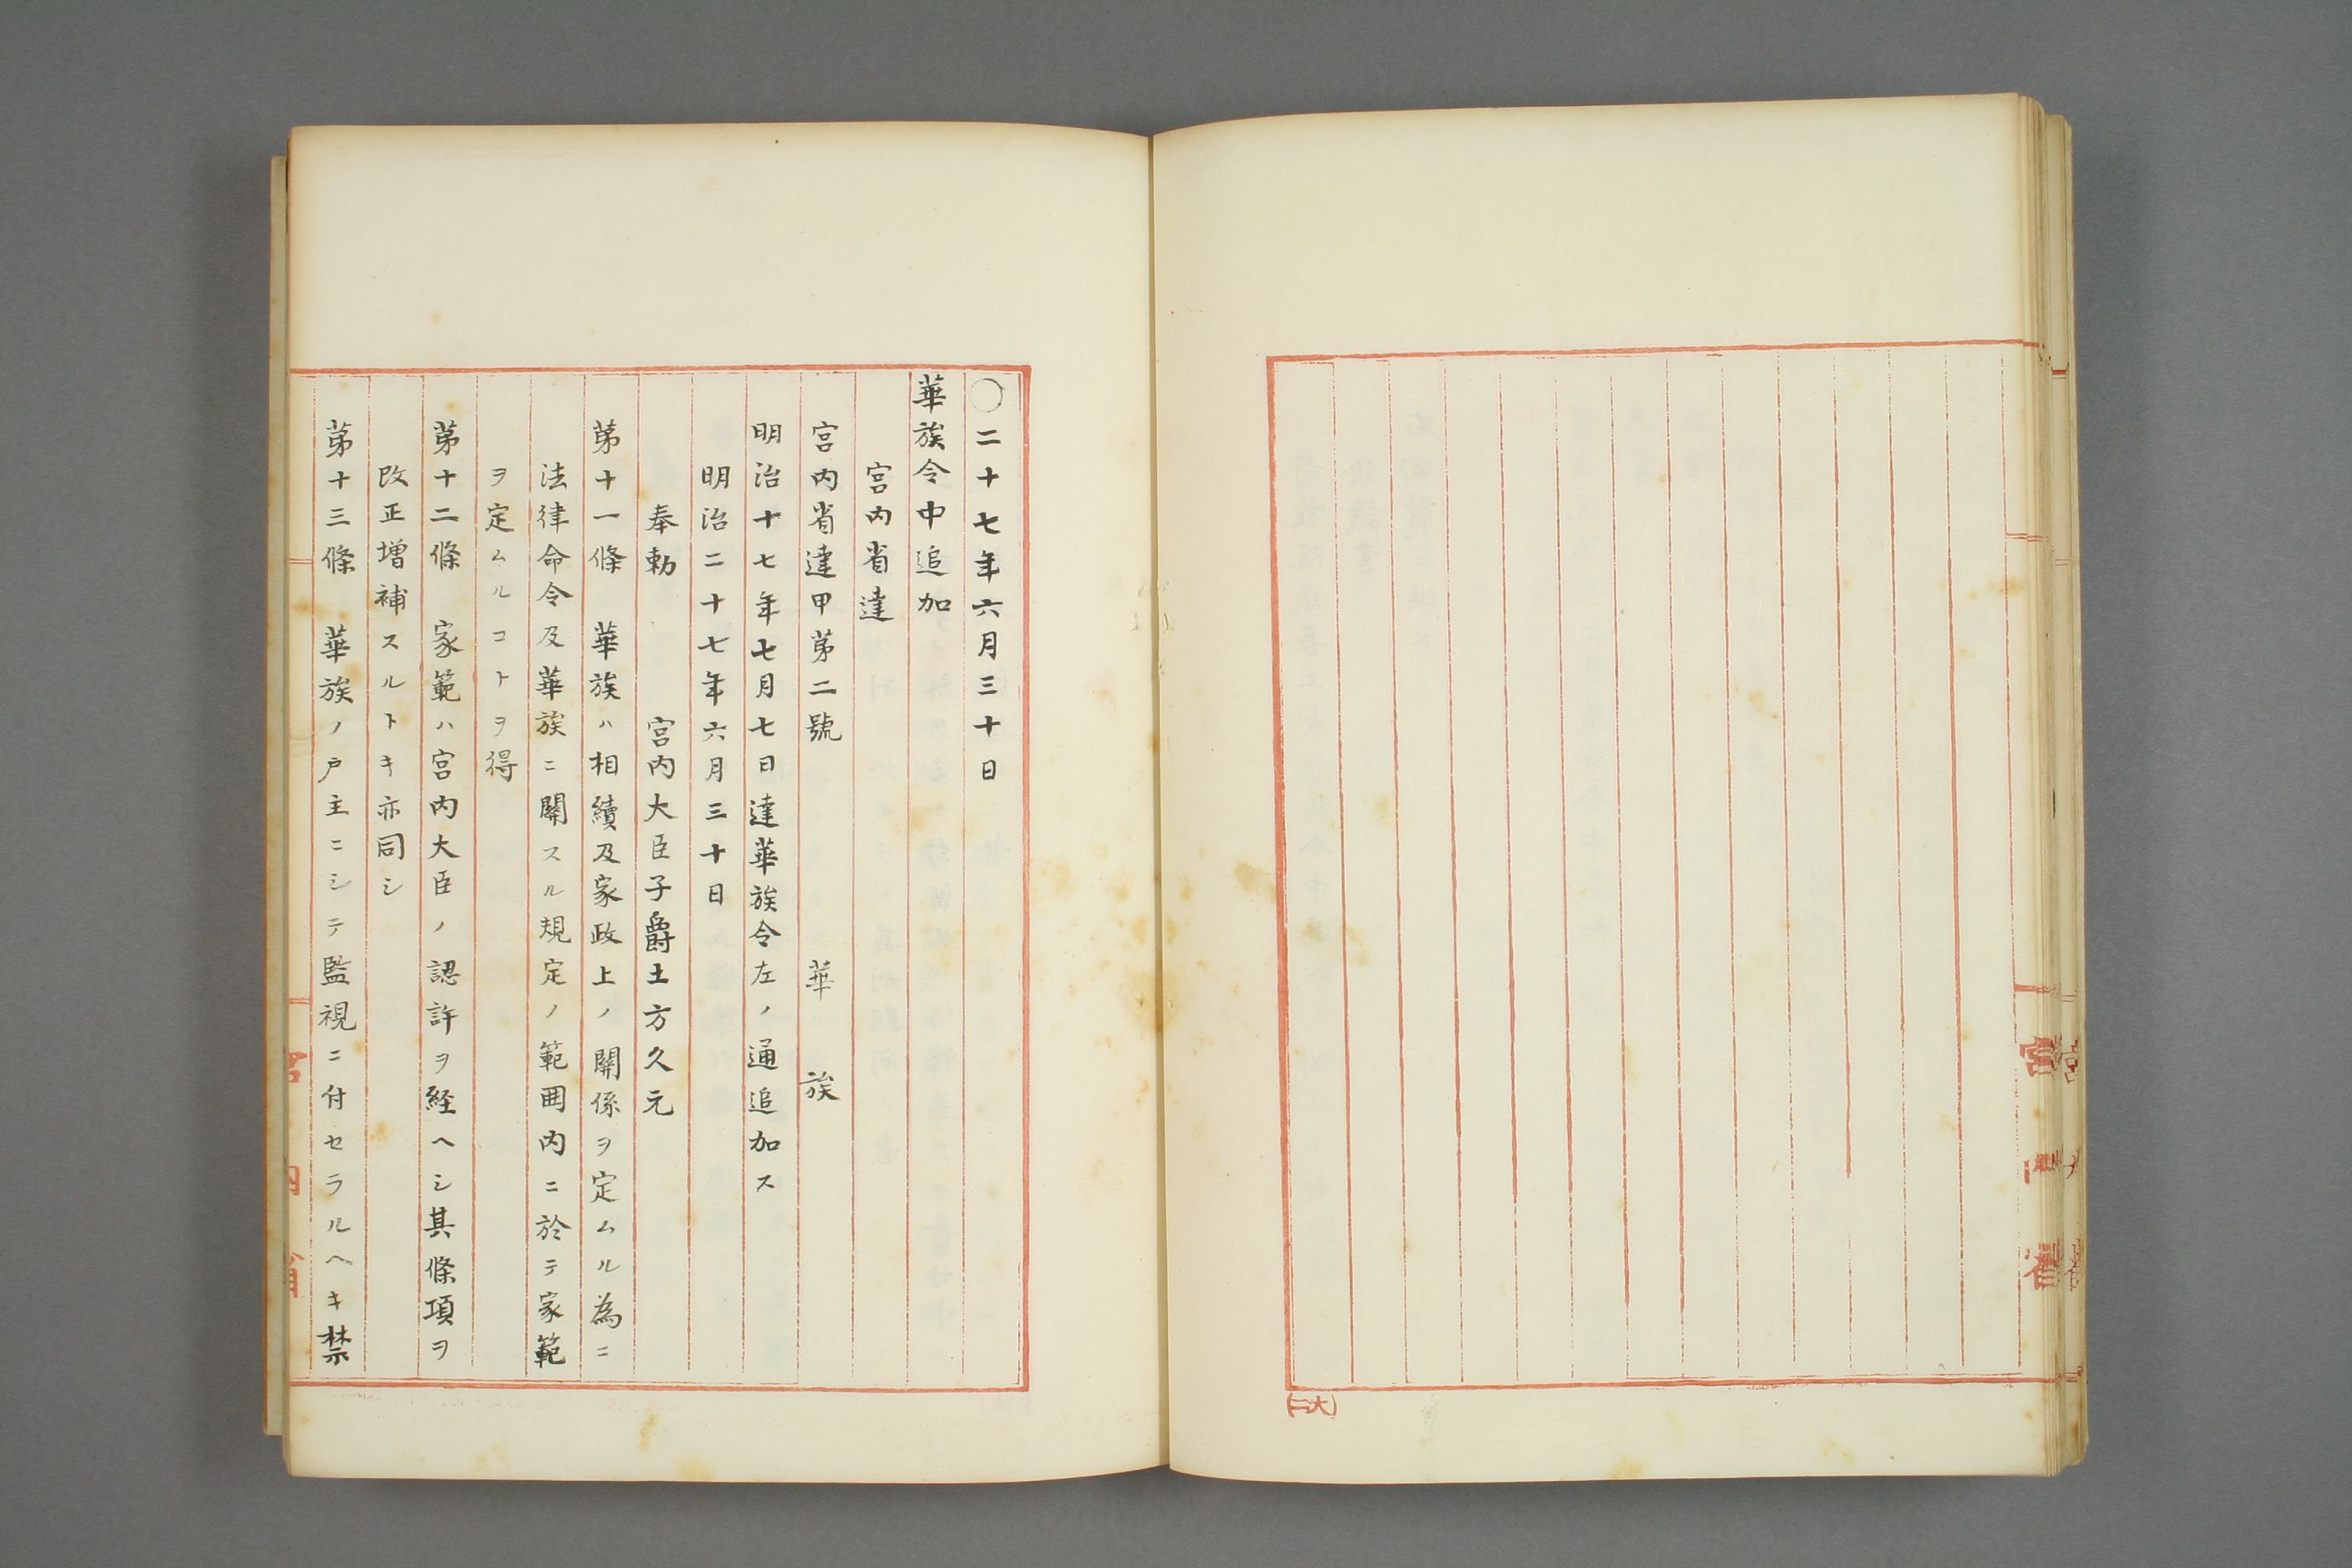 ○二十七年六月三十日
華族令中追加
宮内省達
宮内省達甲第二號 華族
明治十七年七月七日達華族令左ノ通追加ス
明治二十七年六月三十日
奉勅 宮内大臣子爵土方久元
第十一條 華族ハ相續及家政上ノ關係ヲ定ムル為ニ
法律命令及華族ニ關スル規定ノ範囲内ニ於テ家範
ヲ定ムルコトヲ得
第十二條 家範ハ宮内大臣ノ認許ヲ経ヘシ其條項ヲ
改正増補スルトキ亦同シ
第十三條 華族ノ戸主ニシテ監視ニ付セラルヘキ禁
宮内省